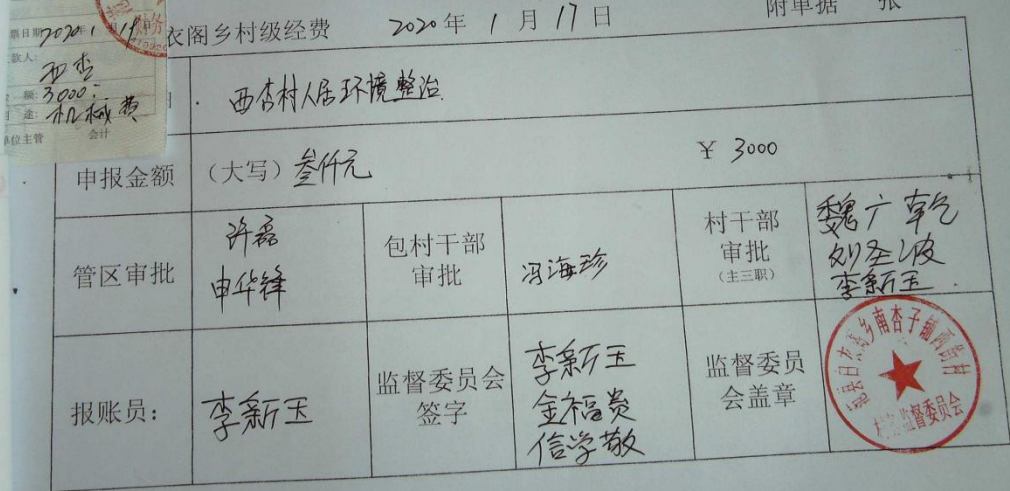 衣阁乡村级经费 2020年1月17日 附单据 张
票日期 2020.1.19
款人: 西杏
额 3000:
途: 机械费
单位主管 会计
西杏村人居环境整治
申报金额 (大写)叁仟元 ¥ 3000
管区审批
许磊
申华锋
包村干部
审批
冯海珍
村干部
审批
(主三职)
魏广乾
刘圣波
李新玉
报账员: 李新玉
监督委员会
签字
李新玉
金福贵
信学敬
监督委员
会盖章
乡南杏子铺西街村
村务监督委员会